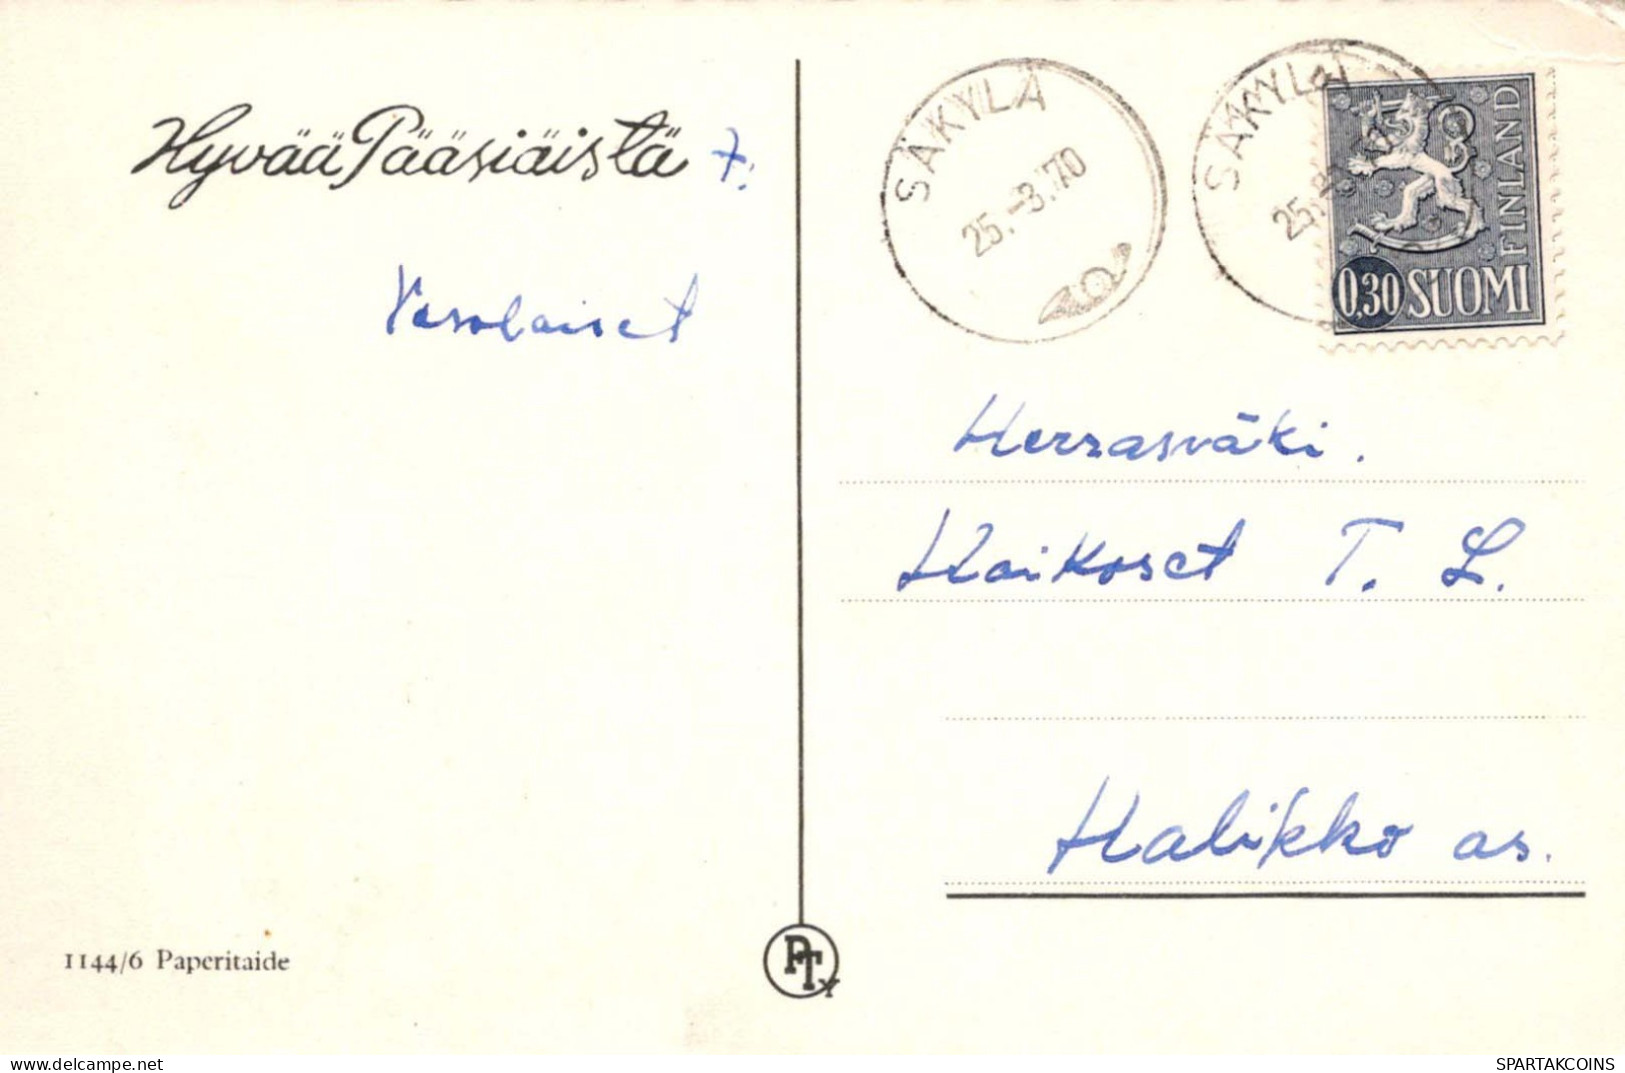 Hyvää Pääsiäistä
SÄKYLÄ
25.-3.70
SÄKYLÄ
FINLAND
0,30 SUOMI
Herrasväki.
Kaikoset T. L.
Halikko as.
1144/6 Paperitaide
PTY
delcampe.net
SPARTAKCOINS